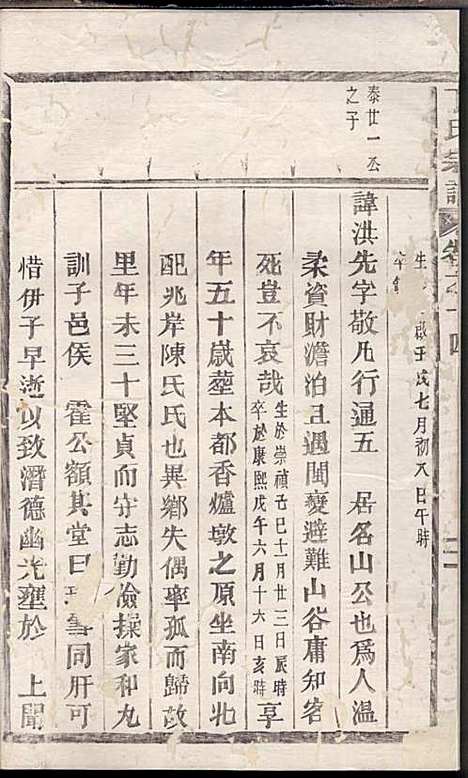 丁氏宗譜 卷之十四
生 啟壬戌七月初八日午時
卒
泰廿一公
之子
諱洪先字敬凡行通五 居名山公也為人溫
柔資財澹泊丑遇閩變避難山谷庸知客
死豈不哀哉 生於崇禎己巳十月廿三日辰時 卒於康熙戊午六月十六日亥時 享
年五十歲葬本都香爐墩之原坐南向北
配兆岸陳氏氏也異鄉失偶率孤而歸故
里年未三十堅貞而守志勤儉操家和丸
訓子邑侯 霍公額其堂曰 同肝可
惜伊子早逝以致潛德幽光壅於 上聞